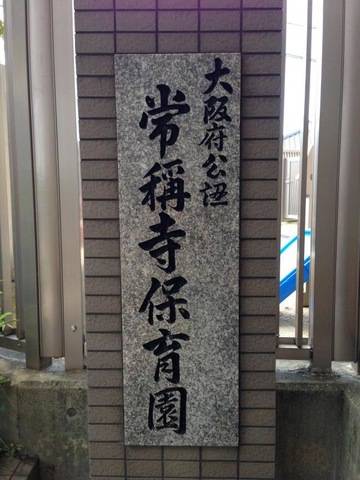 大阪府公認
常稱寺保育園